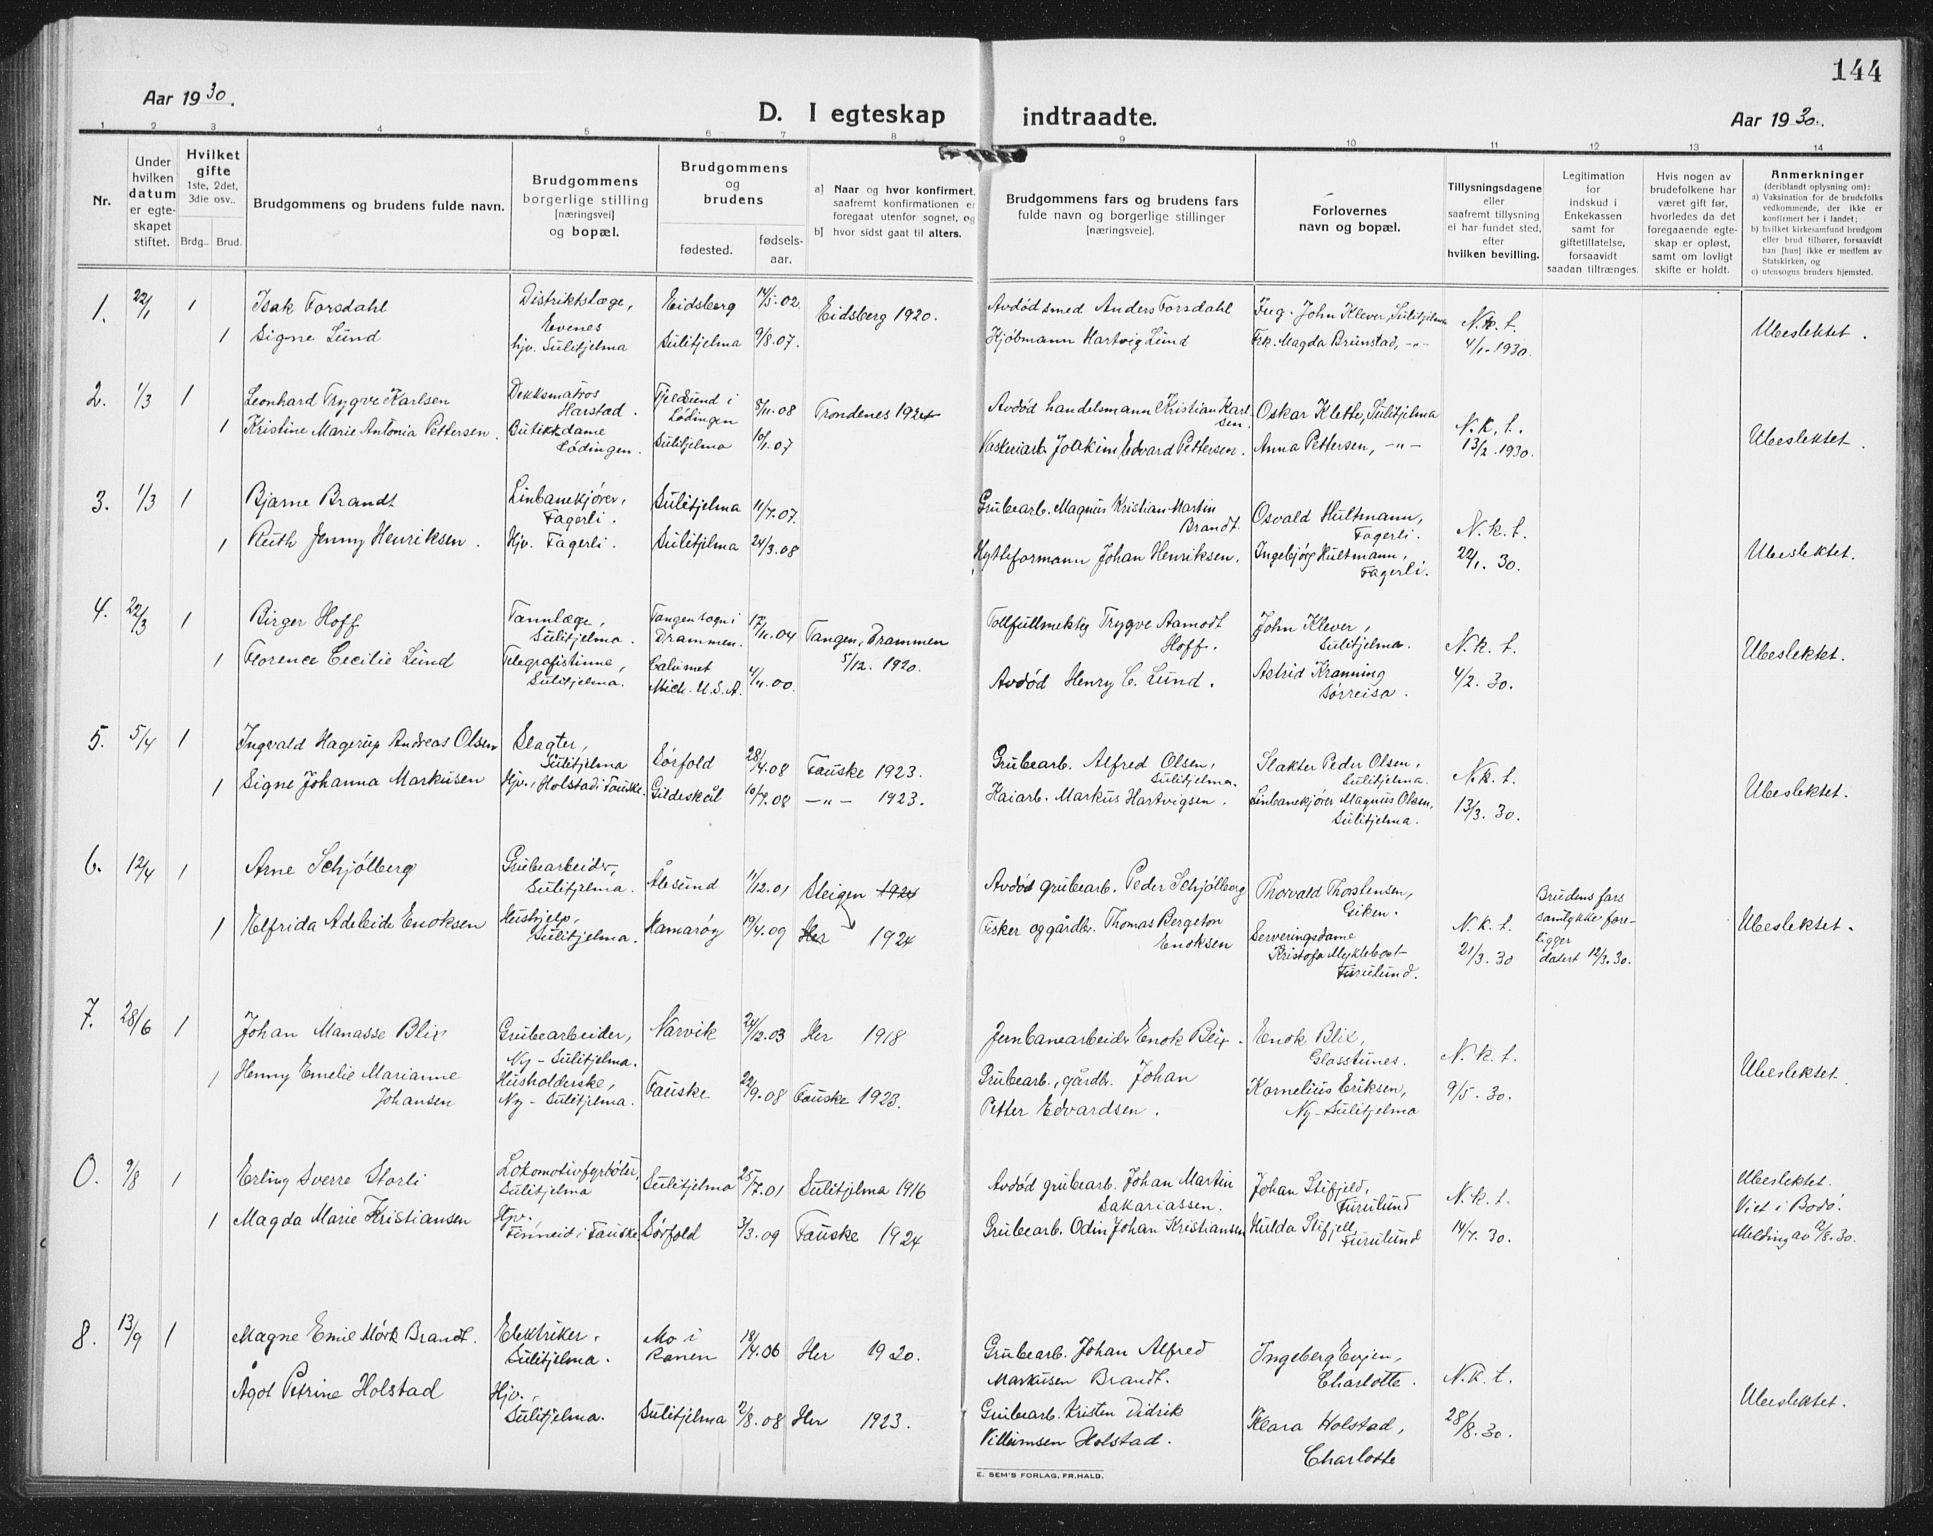 144
Aar 1930.
D. I egteskap indtraadte.
Aar 1930.
1 2 3 4 5 6 7 8 9 10 11 12 13 14
Nr.
Under hvilken datum er egteskapet stiftet.
Hvilket gifte 1ste, 2det, 3die osv..
Brdg.. Brud.
Brudgommens og brudens fulde navn.
Brudgommens borgerlige stilling [næringsvei] og bopæl.
Brudgommens og brudens
fødested.
fødselsaar.
a] Naar og hvor konfirmert, saafremt konfirmationen er foregaat utenfor sognet, og
b] hvor sidst gaat til alters.
Brudgommens fars og brudens fars fulde navn og borgerlige stillinger [næringsveie].
Forlovernes navn og bopæl.
Tillysningsdagene eller saafremt tillysning ei har fundet sted, efter hvilken bevilling.
Legitimation for indskud i Enkekassen samt for giftetillatelse, forsaavidt saadan tiltrænges.
Hvis nogen av brudefolkene har været gift før, hvorledes da det foregaaende egteskap er opløst, samt om lovligt skifte er holdt.
Anmerkninger (deriblandt oplysning om):
a) Vaksination for de brudefolks vedkommende, der ikke er konfirmert her i landet;
b) hvilket kirkesamfund brudgom eller brud tilhører, forsaavidt han [hun] ikke er medlem av Statskirken, og
c) utensogns bruders hjemsted.
1. 22/1 1 Isak Forsdahl Distriktslæge, Evenes Eidsberg 14/5.02 Eidsberg 1920. Avdød smed Anders Forsdahl Ing. John Klever, Sulitjelma N.k.t.
1 Signe Lund hjv. Sulitjelma Sulitjelma 9/8.07. Kjøbmann Hartvig Lund Frk. Magda Brunstad, -"- 4/1.1930. Ubeslektet.
2. 1/3 1 Leonhard Trygve Karlsen Dekksmatros Harstad. Tjeldsund i Lødingen 8/11.08 Trondenes 1924 Avdød handelsmann Kristian Karlsen. Oskar Klette, Sulitjelma N.k.t.
1 Kristine Marie Antonia Pettersen. Butikkdame Lødingen. Sulitjelma 10/1.07 Vaskeriarb. Joakim Edvard Pettersen. Anna Pettersen, -"- 13/2.1930. Ubeslektet.
3. 1/3 1 Bjarne Brandt Linbanekjører, Fagerli. Sulitjelma 11/7.07. Grubearb. Magnus Kristian Martin Brandt. Osvald Hultmann, Fagerli. N.k.t.
1 Ruth Jenny Henriksen. Hjv. Fagerli. Sulitjelma 24/3.08 Hytteformann Johan Henriksen. Ingebjørg Hultmann, Fagerli. 22/1.30. Ubeslektet.
4. 22/3 1 Birger Hoff Tannlæge, Sulitjelma. Tangen sogn i Drammen. 17/11.04 Tangen, Drammen 5/12.1920. Tollfullmektig Trygve Aamodt Hoff. John Klever, Sulitjelma. N.k.t.
1 Florence Cecilie Lund Telegrafistinne, Sulitjelma. Calumet Mich. U.S.A. 4/11.00. Avdød Henry C. Lund. Astrid Kranning Sørreisa. 4/2.30. Ubeslektet.
5. 5/4 1 Ingvald Hagerup Andreas Olsen Slagter, Sulitjelma Sørfold 28/4.08 Fauske 1923. Grubearb. Alfred Olsen, Sulitjelma. Slakter Peder Olsen, Sulitjelma. N.k.t.
1 Signe Johanna Markusen Hjv., Holstad i Fauske. Gildeskål 10/7.08 -"- 1923. Kaiarb. Markus Hartvigsen. Linbanekjører Magnus Olsen, Sulitjelma. 13/3.30. Ubeslektet.
6. 12/4 1 Arne Schjølberg Grubearbeider, Sulitjelma. Ålesund 11/12.01 Steigen 1924 Avdød grubearb. Peder Schjølberg Thorvald Thostensen, Giken. Brudens fars samtykke foreligger datert 12/3.30.
1 Elfrida Adeleide Enoksen Hushjelp, Sulitjelma. Hamarøy 19/4.09 Her 1924 Fisker og gårdbr. Thomas Bergeton Enoksen Serveringsdame Kristofa Myklebost Furulund. N.k.t. 21/3.30 Ubeslektet.
7. 28/6 1 Johan Manasse Blix Grubearbeider, Ny-Sulitjelma. Narvik 24/12.03 Her 1918 Jernbanearbeider Enok Blix. Enok Blix, Glasstunes. N.k.t.
1 Henny Emelie Marianne Johansen Husholderske, Ny-Sulitjelma. Fauske 22/9.08 Fauske 1923. Grubearb., gårdb. Johan Petter Edvardsen. Kornelius Eriksen, Ny-Sulitjelma 9/5.30. Ubeslektet.
0. 9/8 1 Erling Sverre Storli Lokomotivfyrbøter, Sulitjelma Sulitjelma 25/7.01 Sulitjelma 1916 Avdød grubearb. Johan Martin Sakariassen. Johan Stifjeld, Furulund N.k.t. Ubeslektet.
1 Magda Marie Kristiansen Hjv. Finneid i Fauske Sørfold 3/3.09 Fauske 1924 Grubearb. Odin Johan Kristiansen Hulda Stifjell, Furulund 14/7.30. Viet i Bodø. Melding av 9/8.30.
8. 13/9 1 Magne Emil Mørk Brandt. Elektriker. Sulitjelma. Mo i Ranen 18/4.06 Her 1920. Grubearb. Johan Alfred Markusen Brandt. Ingeberg Evjen, Charlotte. N.k.t.
Ågot Petrine Holstad Hjv., Sulitjelma. Sulitjelma 2/8.08 Her 1923. Grubearb. Kristen Didrik Villumsen Holstad. Klara Holstad, Charlotte 28/8.30. Ubeslektet.
E. SEM'S FORLAG, FR.HALD.